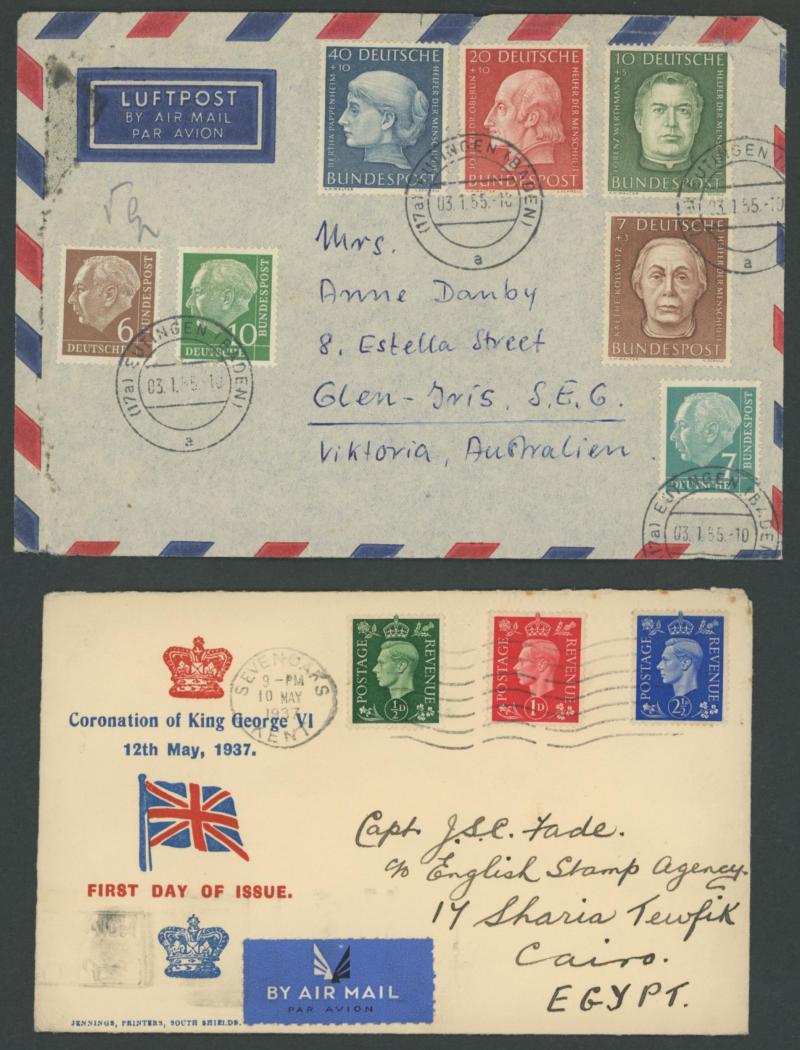 LUFTPOST
BY AIR MAIL
PAR AVION
40 DEUTSCHE
+10
BERTHA PAPPENHEIM
HELFER DER MENSCHHEIT
BUNDESPOST
20 DEUTSCHE
+10
HELFER DER MENSCHHEIT
BUNDESPOST
10 DEUTSCHE
+5
LORENZ WERTHMANN
HELFER DER MENSCHHEIT
BUNDESPOST
(17a) EUTINGEN (BADEN)
03.1.55.-10
a
EUTINGEN
03.1.55.-10
a
7
+3
KAETHE KOLLWITZ
HELFER DER MENSCHHEIT
BUNDESPOST
6
DEUTSCHE
BUNDESPOST
10
DEUTSCHE
BUNDESPOST
(17a) EUTINGEN (BADEN)
03.1.55.-10
a
Mrs.
Anne Danby
8. Estella Street
Glen-Iris, S.E.6.
Viktoria, Australien.
7
DEUTSCHE
BUNDESPOST
(17a) EUTINGEN (BADEN
03.1.55.-10
SEVENOAKS
9 - PM
10 MAY
1937
KENT
POSTAGE REVENUE
½D
POSTAGE REVENUE
1D
POSTAGE REVENUE
2½D
Coronation of King George VI
12th May, 1937.
FIRST DAY OF ISSUE.
Capt. J.S.C. Fade.
c/o English Stamp Agency.
17 Sharia Tewfik
Cairo.
EGYPT.
BY AIR MAIL
PAR AVION
JENNINGS, PRINTERS, SOUTH SHIELDS.